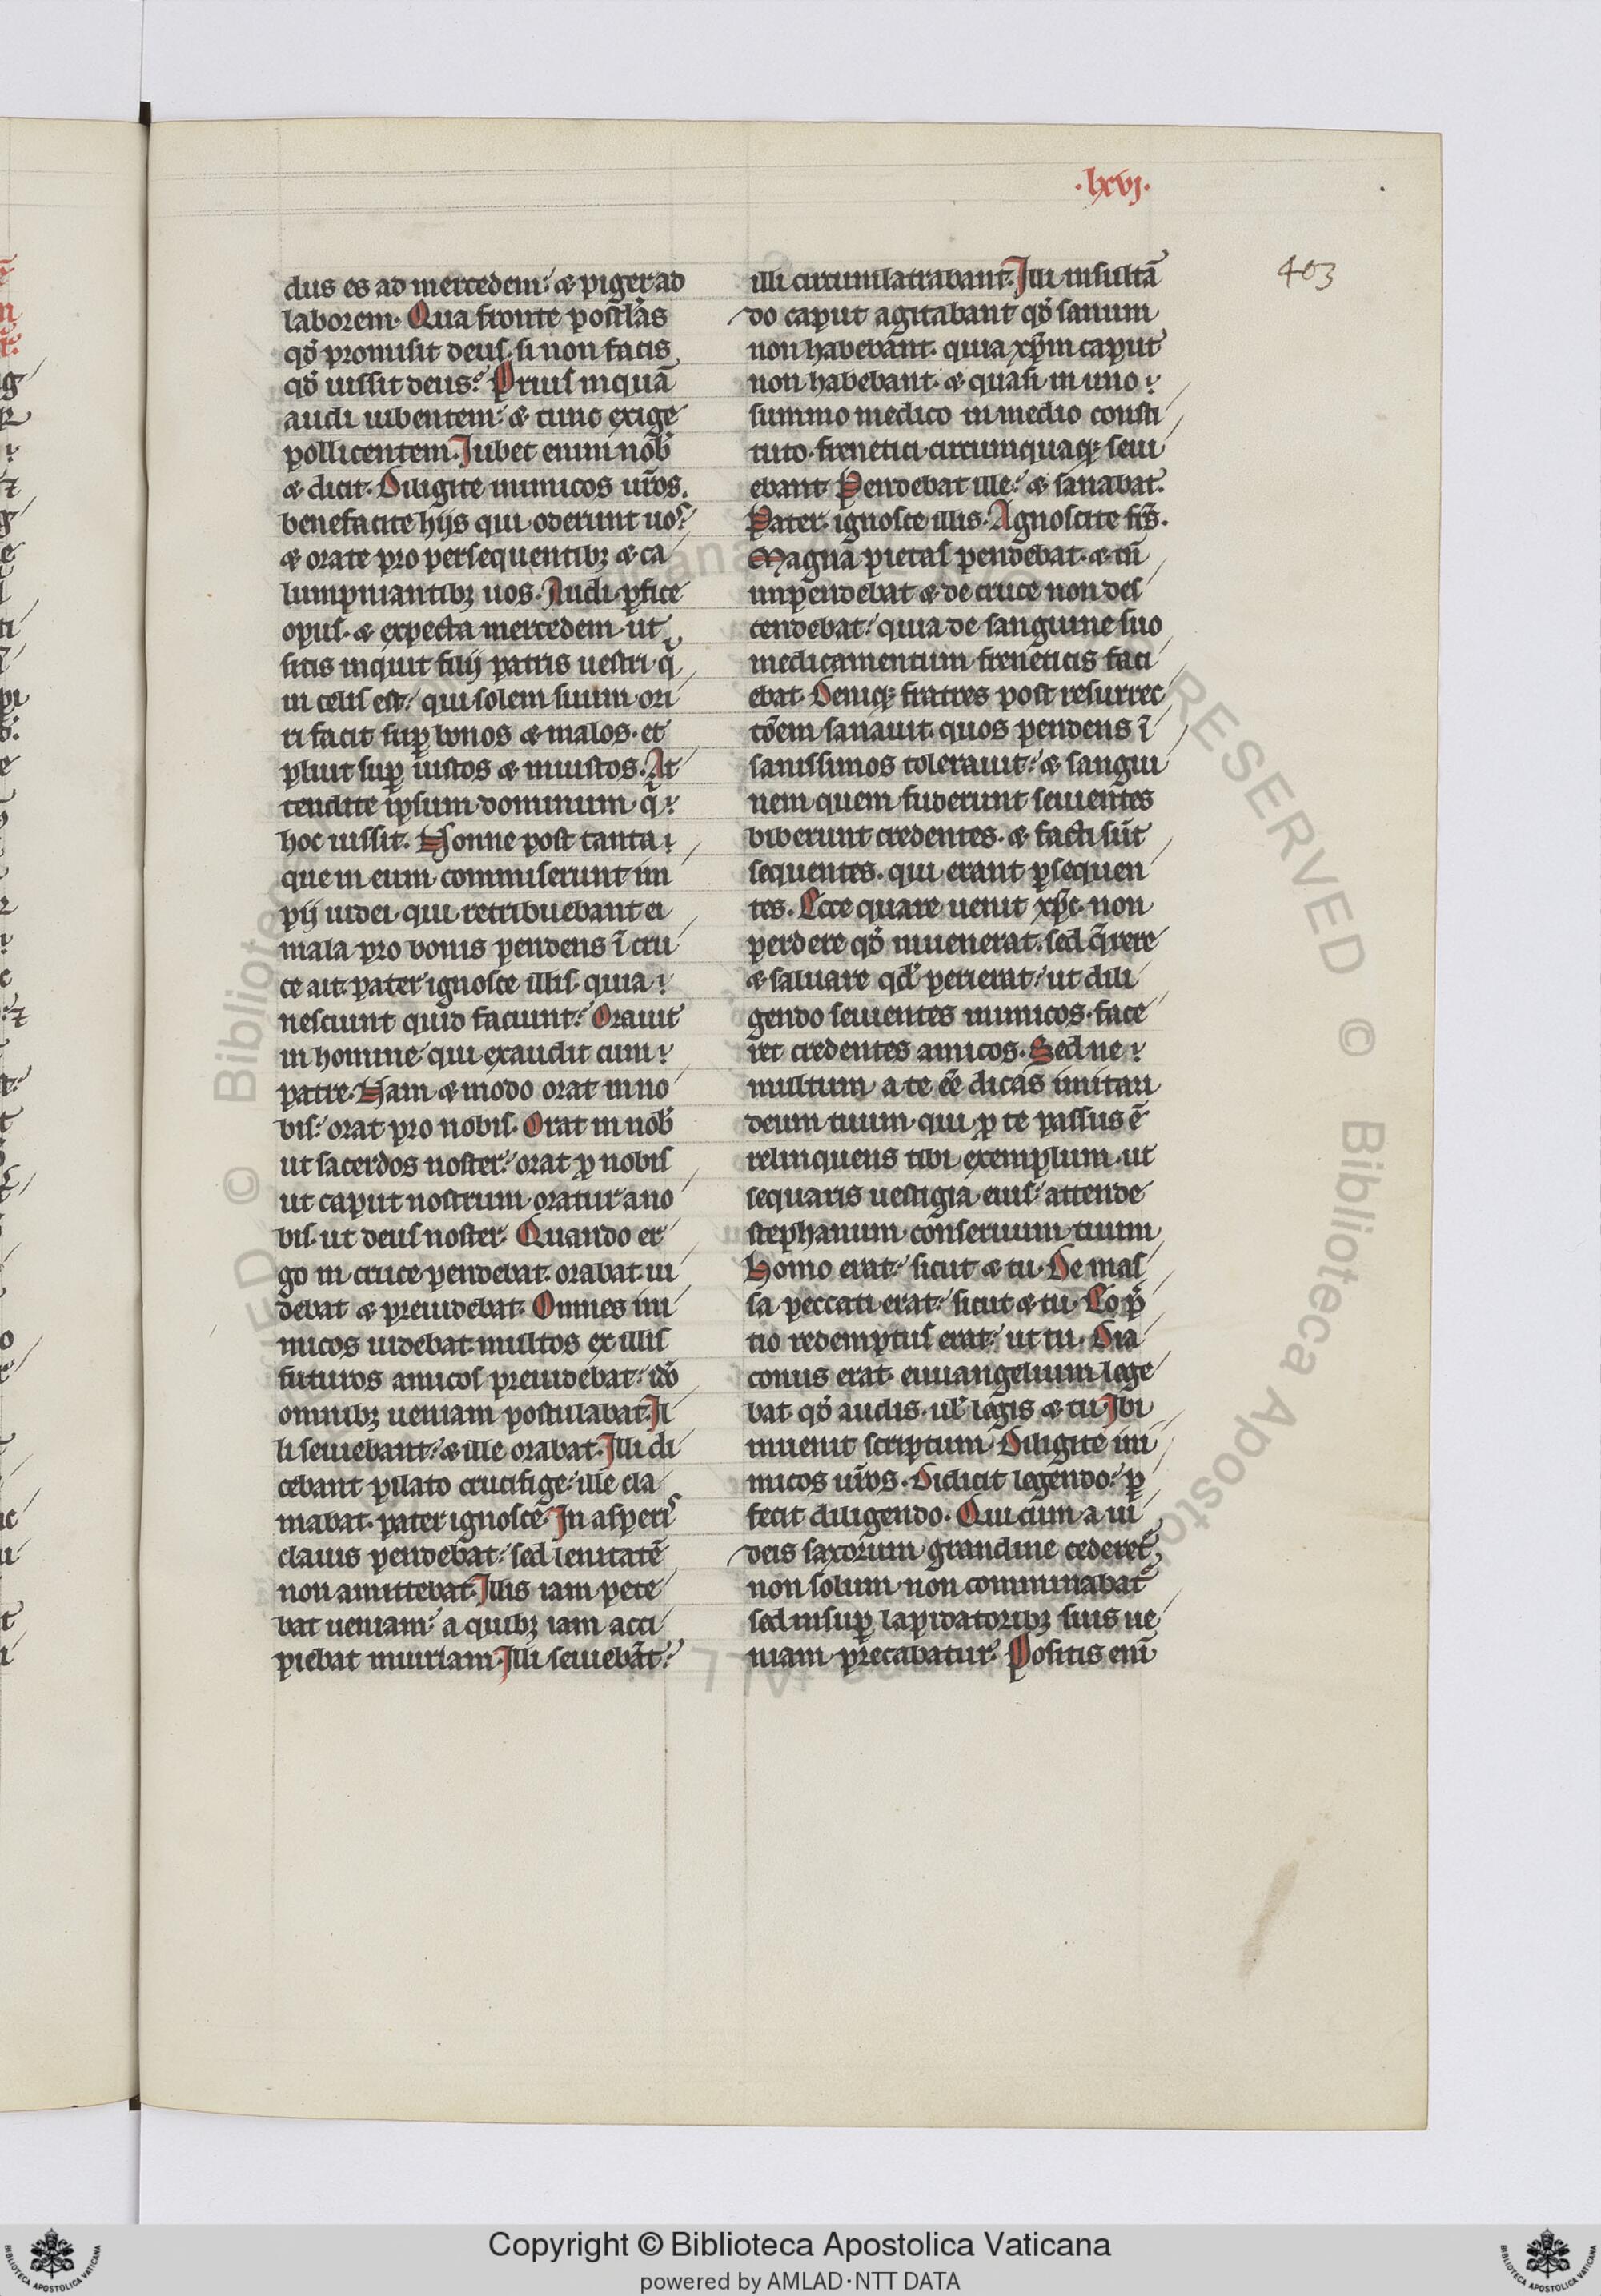 .lxvj.
403
dus es ad mercedem: & piger ad
laborem. Qua fronte post̄las
qđ promisit deus. si non facis
qđ iussit deus? Prius inquā
audi iubentem: & tunc exige
pollicentem. Iubet enim nob̄
& dicit. Diligite inimicos ur̄os.
benefacite hijs qui oderunt uos:
& orate pro persequentibꝫ & ca
lumpniantibꝫ uos. Audi. ꝑfice
opus. & expecta mercedem. ut
sitis inquit filij patris uestri. q̇
in celis est: qui solem suum ori
ri facit suꝑ bonos & malos. et
pluit suꝑ iustos & iniustos. At
tendite ipsum dominum q̇
hoc iussit. Nonne post tanta
que in eum commiserunt im
pij iudei. qui retribuebant ei
mala pro bonis pendens ī cru
ce ait. pater ignosce illis. quia
nesciunt quid faciunt? Orauit
in homine qui exaudit cum
patre. Nam & modo orat in no
bis: orat pro nobis. Orat in nob̄
ut sacerdos noster: orat ꝓ nobis
ut caput nostrum. oratur a no
bis. ut deus noster. Quando er
go in cruce pendebat. orabat. ui
debat & preuidebat. Omnes ini
micos uidebat. multos ex illis
futuros amicos preuidebat: iđo
omnibꝫ ueniam postulabat. Il
li seuiebant: & ille orabat. Illi di
cebant pilato crucifige: ille cla
mabat. pater ignosce. In asperis
clauis pendebat: sed lenitatē
non amittebat. Illis iam pete
bat ueniam: a quibꝫ iam acci
piebat iniuriam. Illi seuiebāt:
illi circumlatrabant. Illi insultā
do caput agitabant qđ sanum
non habebant. quia xp̄m caput
non habebant. & quasi in uno
summo medico in medio consti
tuto. frenetici circumquaqꝫ seui
ebant. Pendebat ille: & sanabat.
Pater. ignosce illis. Agnoscite fr̄s.
Magna pietas pendebat. & tn̄
impendebat & de cruce non des
cendebat: quia de sanguine suo
medicamentum freneticis faci
ebat. Deniqꝫ fratres post resurrec
tōem sanauit. quos pendens ī
sanissimos tolerauit: & sangui
nem quem fuderunt seuientes
biberunt credentes. & facti sūt
sequentes. qui erant ꝑsequen
tes. Ecce quare uenit xp̄c. non
perdere qđ inuenerat. sed q̄rere
& saluare qđ perierat: ut dili
gendo seuientes inimicos. face
ret credentes amicos. Sed ne
multum a te eē dicas imitari
deum tuum. qui ꝓ te passus ē
relinquens tibi exemplum. ut
sequaris uestigia eius: attende
stephanum. conseruum tuum
Homo erat: sicut & tu. De mas
sa peccati erat: sicut & tu. Eo p̄
tio redemptus erat: ut tu. Dia
conus erat. euuangelium lege
bat qđ audis. ul̄ legis & tu. Ibi
inuenit scriptum. Diligite ini
micos ur̄os. Didicit legendo: ꝑ
fecit diligendo. Qui cum a iu
deis saxorum grandine cederet᷑
non solum non comminabat᷑
sed insuꝑ lapidatoribꝫ suis ue
niam precabatur. Positis enī
Copyright © Biblioteca Apostolica Vaticana
powered by AMLAD·NTT DATA